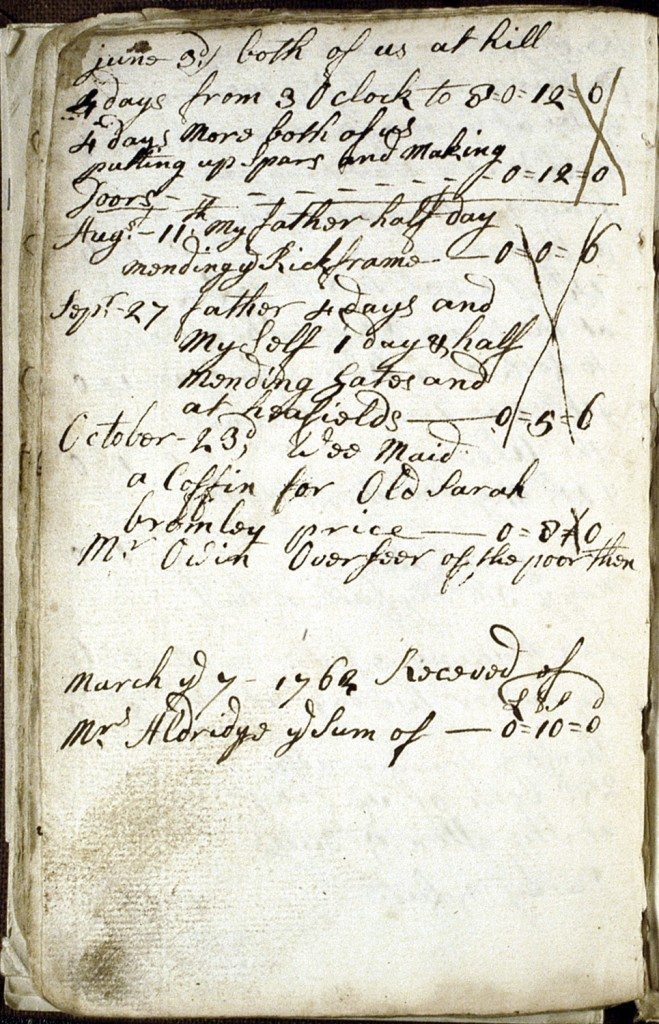 june 3d, both of us at hill
4 days from 3 O Clock to 8=0=12=0
4 days More both of us
putting up Spars and Making
Doors - - - - - - - 0=12=0
Augst-11th My father half day
mending ye Rick frame - 0=0=6
Sept-27 father 4 days and
My Self 1 day & half
Mending Gates and
at heafields - 0=5=6
October-23d, Wee Maid
a Coffin for Old Sarah
bromley price - 0=8=0
Mr Owin Overseer of the poor then
March ye 7 - 1764 Receved of
£ S D
Mrs Aldridge ye Sum of - 0=10=0